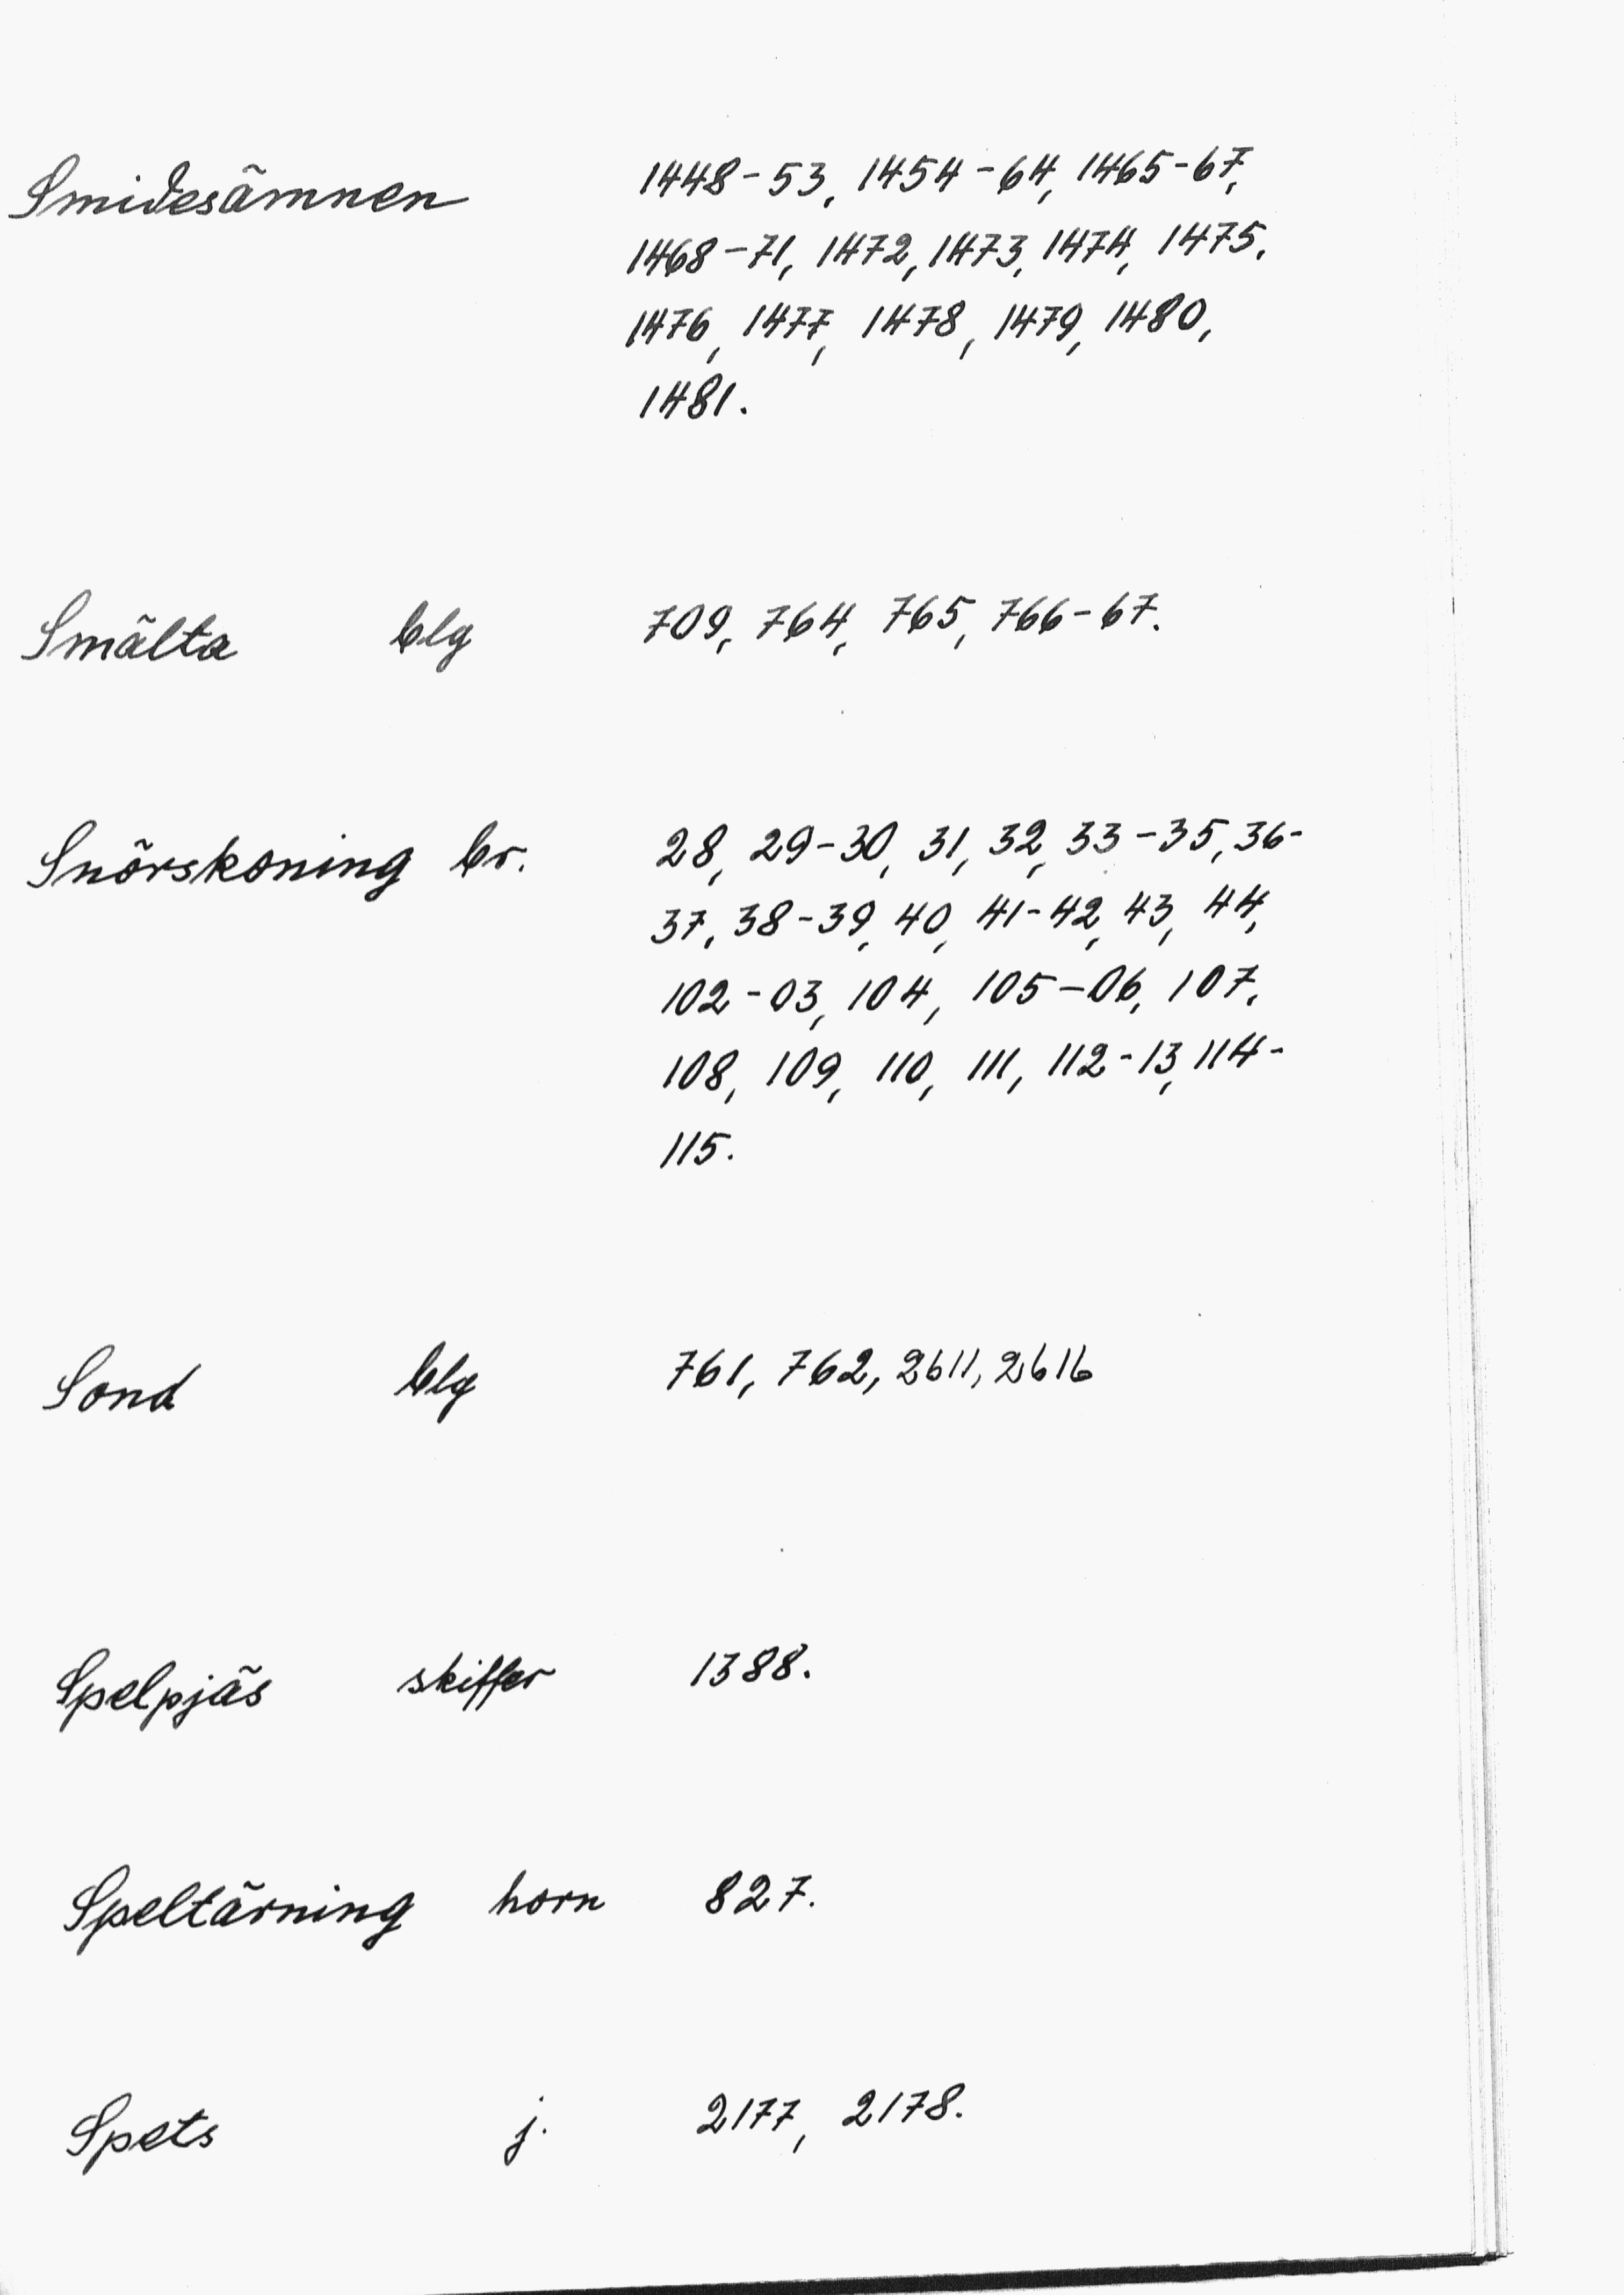 Smidesämnen 1448-53, 1454-64, 1465-67,
1468-71, 1472, 1473, 1474, 1475,
1476, 1477, 1478, 1479, 1480,
1481.
Smälta blg 709, 764, 765, 766-67.
Snörskoning br. 28, 29-30, 31, 32, 33-35, 36-
37, 38-39, 40, 41-42, 43, 44,
102-03, 104, 105-06, 107,
108, 109, 110, 111, 112-13, 114-
115.
Sond blg 761, 762, 2611, 2616
Spelpjäs skiffer 1388.
Speltärning horn 827.
Spets j. 2177, 2178.